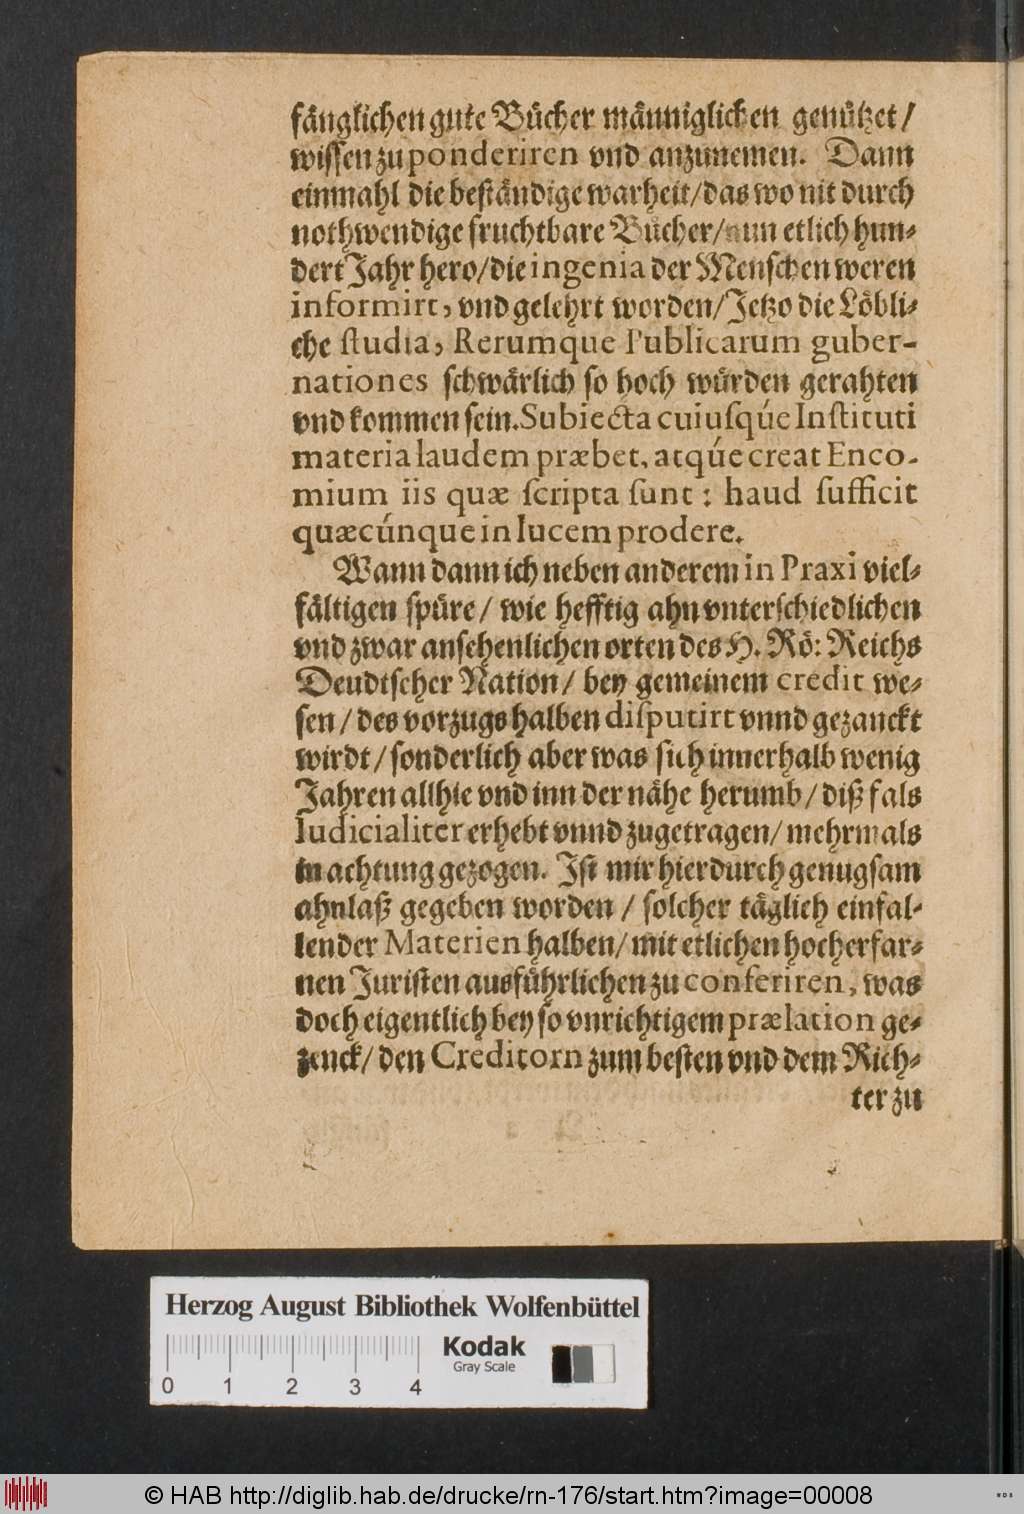 fänglichen gute Bücher männiglichen genützet /
wissen zu ponderiren vnd anzunemen. Dann
einmahl die beständige warheit / das wo nit durch
nothwendige fruchtbare Bücher / nun etlich hun-
dert Jahr hero / die ingenia der Menschen weren
informirt, vnd gelehrt worden / Jetzo die Löbli-
che studia, Rerumque Publicarum guber-
nationes schwärlich so hoch würden gerahten
vnd kommen sein. Subiecta cuiusqúe Instituti
materia laudem præbet, atqúe creat Enco-
mium iis quæ scripta sunt: haud sufficit
quæcúnque in lucem prodere.
Wann dann ich neben anderem in Praxi viel-
fältigen spüre / wie hefftig ahn vnterschiedlichen
vnd zwar ansehenlichen orten des H. Rö: Reichs
Deudtscher Nation / bey gemeinem credit we-
sen / des vorzugs halben disputirt vnnd gezanckt
wirdt / sonderlich aber was sich innerhalb wenig
Jahren allhie vnd inn der nähe herumb / diß fals
Iudicialiter erhebt vnnd zugetragen / mehrmals
in achtung gezogen. Ist mir hierdurch genugsam
ahnlaß gegeben worden / solcher täglich einfal-
lender Materien halben / mit etlichen hocherfar-
nen Juristen ausführlichen zu conferiren, was
doch eigentlich bey so vnrichtigem prælation ge-
zenck / den Creditorn zum besten vnd dem Rich-
ter zu
Herzog August Bibliothek Wolfenbüttel
Kodak
Gray Scale
0 1 2 3 4
© HAB http://diglib.hab.de/drucke/rn-176/start.htm?image=00008